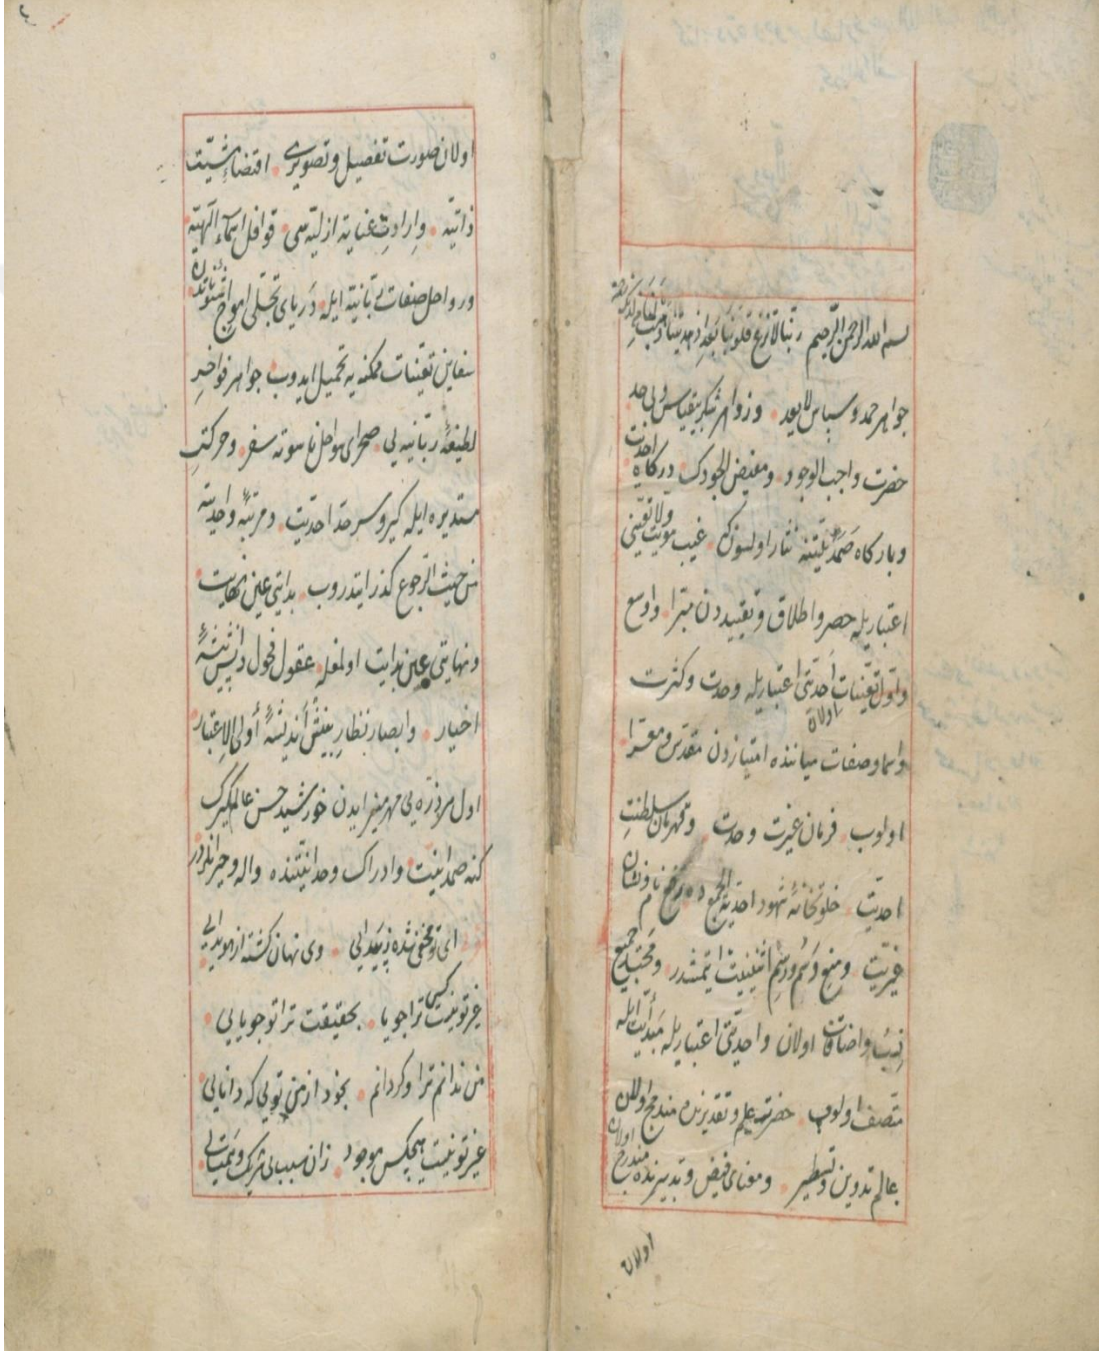 بسم الله الرحمن الرحیم ربنا لا تزغ قلوبنا بعد اذ هدیتنا وهب لنا من لدنك رحمة
جواهر حمد وسپاس لایعد وزواهر شکر بیقیاس وبی حد
حضرت واجب الوجود ومفیض الجودك درکاه احدیت
وبارکاه صمدیتینه نثار اولسون که غیب هویت ولا تعینی
اعتباریله حصر واطلاق وتقییددن مبرا واوسع
واول تعینات احدیتی اعتباریله وحدت وکثرت
اولان
واسما وصفات میاننده امتیازدن مقدس ومعرا
اولوب فرمان غیرت وحدت وقهرمان سلطنت
احدیت خلوتخانهٔ شهود احدیة الجمعده رفع نام ونشان
غیریت ومنع وسم ورسم اثنینیت ایتمشدر ومحتد جمیع
نسب واضافات اولان واحدیتی اعتباریله مبدأیت ایله
متصف اولوب حضرت علم وتقدیرنده مندمج اولان
عالم تدوین وتسطیر ومعنای فیض وتدبیرنده مندرج اولان
اولان
اولان صورت تفصیل وتصویری اقتضاء مشیت
ذاتیه وارادت عنایة ازلیه سی قوافل اسماء الهیه
ورواحل صفات ربانیه ایله دریای تجلی امواج
سفاین تعینات ممکنه یه تحمیل ایدوب جواهر فواخر
لطیفهٔ ربانیه یی صحرای سواحل ناسوته سفر وحرکت
مستدیره ایله کیرو سرحد احدیت ومرتبهٔ واحدیته
من حیث الرجوع کذر ایتدروب بدایتی عین نهایت
ونهایتی عین بدایت اولمغله عقول فحول دانش پیشهٔ
اخیار وابصار نظار بینش اندیشهٔ أولی الاعتبار
اول هر ذره یی مهر منیر ایدن خورشید حسن عالمکیرك
کنه صمدانیت وادراك وحدانیتنده واله وحیرانلردر
ای تو مخفی شده ز پیدایی وی نهان کشته از هویدایی
غیر تو نیست کسی ترا جویا بحقیقت ترا تو جویایی
من ندانم ترا وکر دانم بخود از من تویی که دانایی
غیر تو نیست هیچکس موجود زان سبب بی شریك وهمتایی